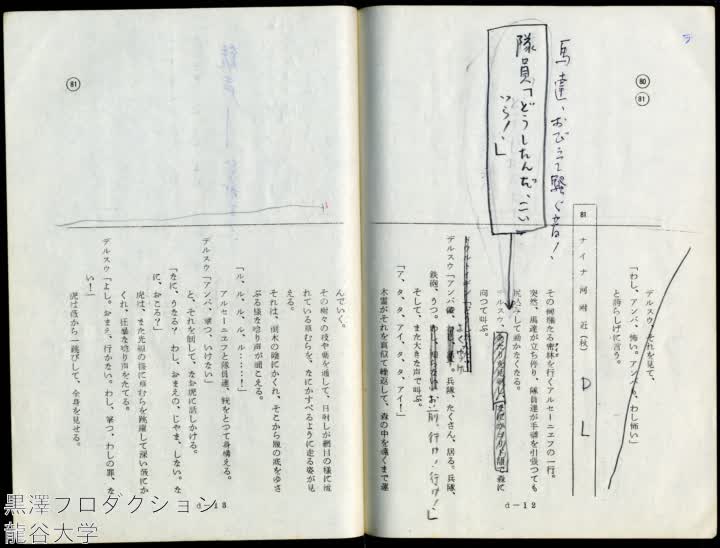 80
81
デルスウ、それを見て、
「わし、アンバ、怖い。アンバ、わし怖い」
と誇らしげに言う。
81 ナイナ河附近(秋)
D L
馬達、おびえて騒ぐ音!、
隊員「どうしたんだ、こい
つら!、」
その鬱蒼たる密林を行くアルセーニエフの一行。
突然、馬達が立ち停り、隊員達が手綱を引張つても
尻込みして動かなくなる。
デルスウ、
森に
向つて叫ぶ。
デルスウ「アンバ
兵隊、たくさん、居る。兵隊、
鉄砲、うつ。
お前、行け!行け!」
そして、また大きな声で叫ぶ。
「ア、タ、タ、アイ、タ、タ、アイ!」
木霊がそれを真似て繰返して、森の中を遠くまで運
d-12
81
んでいく。
その樹々の枝や葉を通して、日射しが網目の様に流
れている草むらを、なにかすべるように走る姿が見
える。
それは、倒木の陰にかくれ、そこから腹の底をゆさ
ぶる様な唸り声が聞こえる。
「ル、ル、ル、ル……!」
アルセーニエフと隊員達、銃をとつて身構える。
デルスウ「アンバ、撃つ、いけない」
と、それを制して、なお虎に話しかける。
「なに、うなる? わし、おまえの、じやま、しない。な
に、おこる?」
虎は、また光線の縞に草むらを跳躍して深い藪にか
くれ、狂暴な唸り声をたてる。
デルスウ「よし。おまえ、行かない。わし、撃つ、わしの罪、な
い!」
虎は藪から一跳びして、全身を見せる。
d-13
黒澤プロダクション
龍谷大学